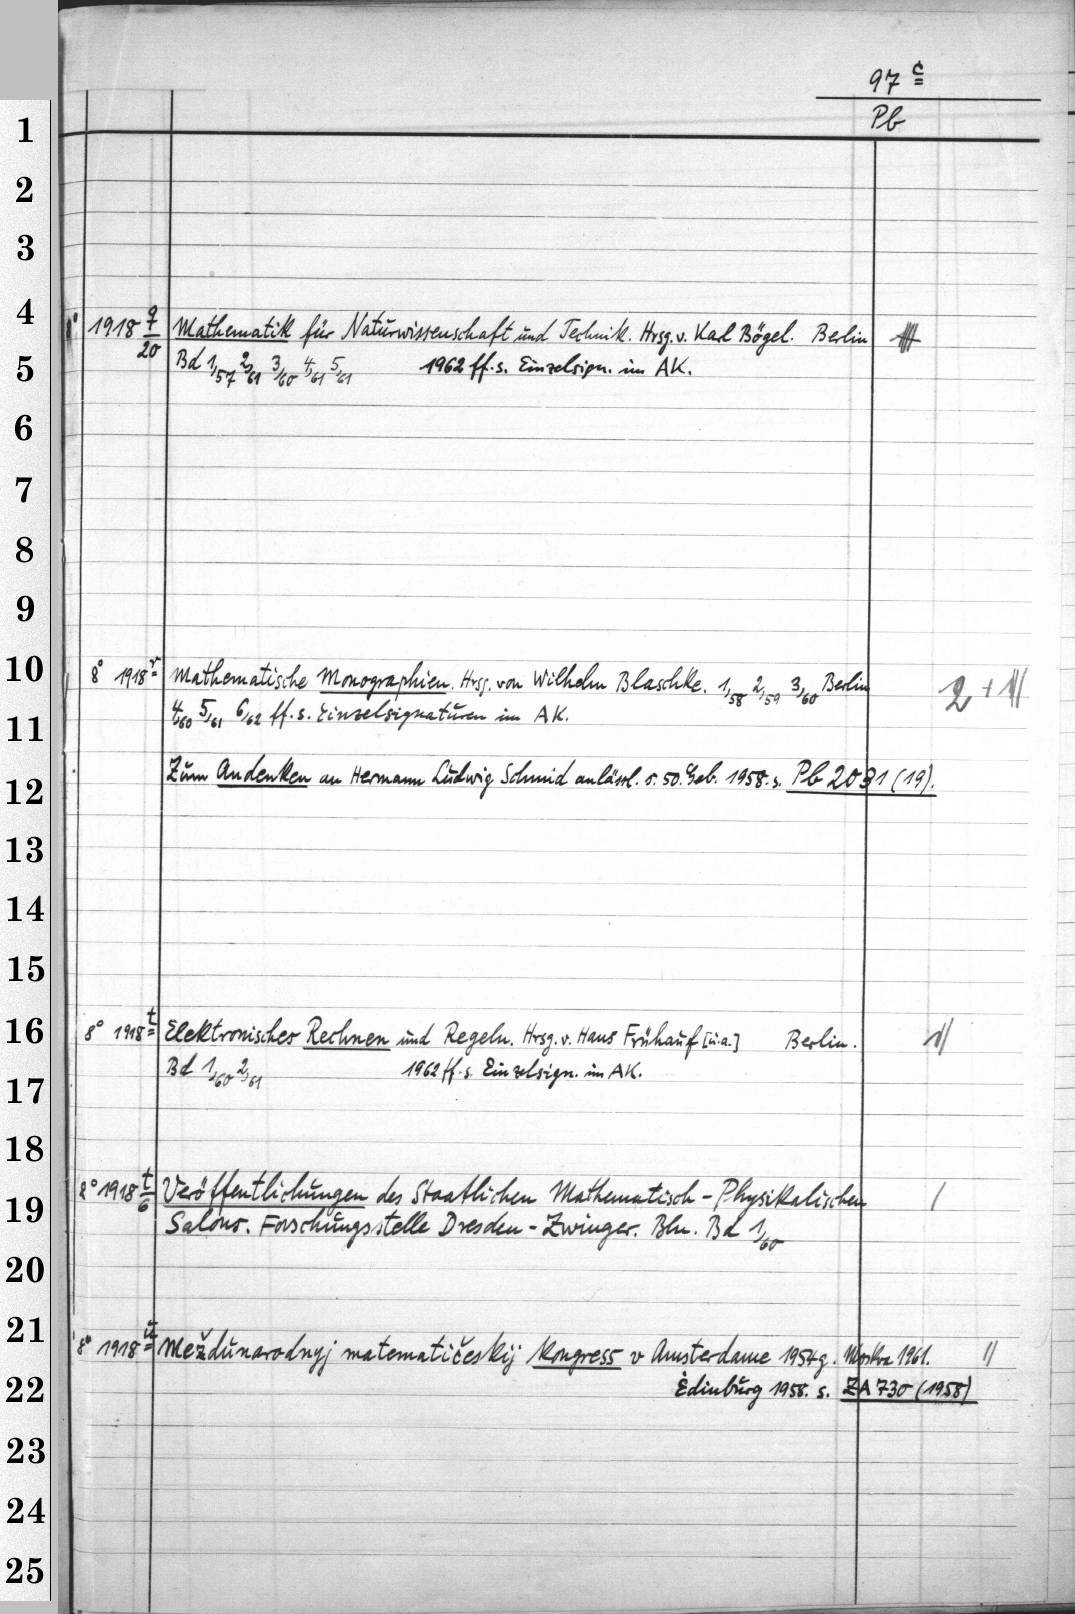 97 c
Pb
1
2
3
4
8° 1918 q/20 Mathematik für Naturwissenschaft und Technik. Hrsg. v. Karl Bögel. Berlin
5
Bd 1,57 2,61 3,60 4,61 5,61 1962 ff. s. Einzelsign. im AK.
6
7
8
9
10
8° 1918 r Mathematische Monographien. Hrsg. von Wilhelm Blaschke. 1,58 2,59 3,60 Berlin 2 +
4,60 5,61 6,62 ff. s. Einzelsignaturen im AK.
11
Zum Andenken an Hermann Ludwig Schmid anlässl. s. 50. Geb. 1958. s. Pb 2031 (19).
12
13
14
15
16
8° 1918 t Elektronisches Rechnen und Regeln. Hrsg. v. Hans Frühauf [u.a.] Berlin.
Bd 1,60 2,61 1962 ff. s. Einzelsign. im AK.
17
18
8° 1918 t/6 Veröffentlichungen des Staatlichen Mathematisch-Physikalischen
19
Salons. Forschungsstelle Dresden-Zwinger. Bln. Bd 1,60
20
21
8° 1918 u Meždunarodnyj matematičeskij kongress v Amsterdame 1954g. Moskva 1961.
22
Edinburg 1958. s. ZA 730 (1958)
23
24
25